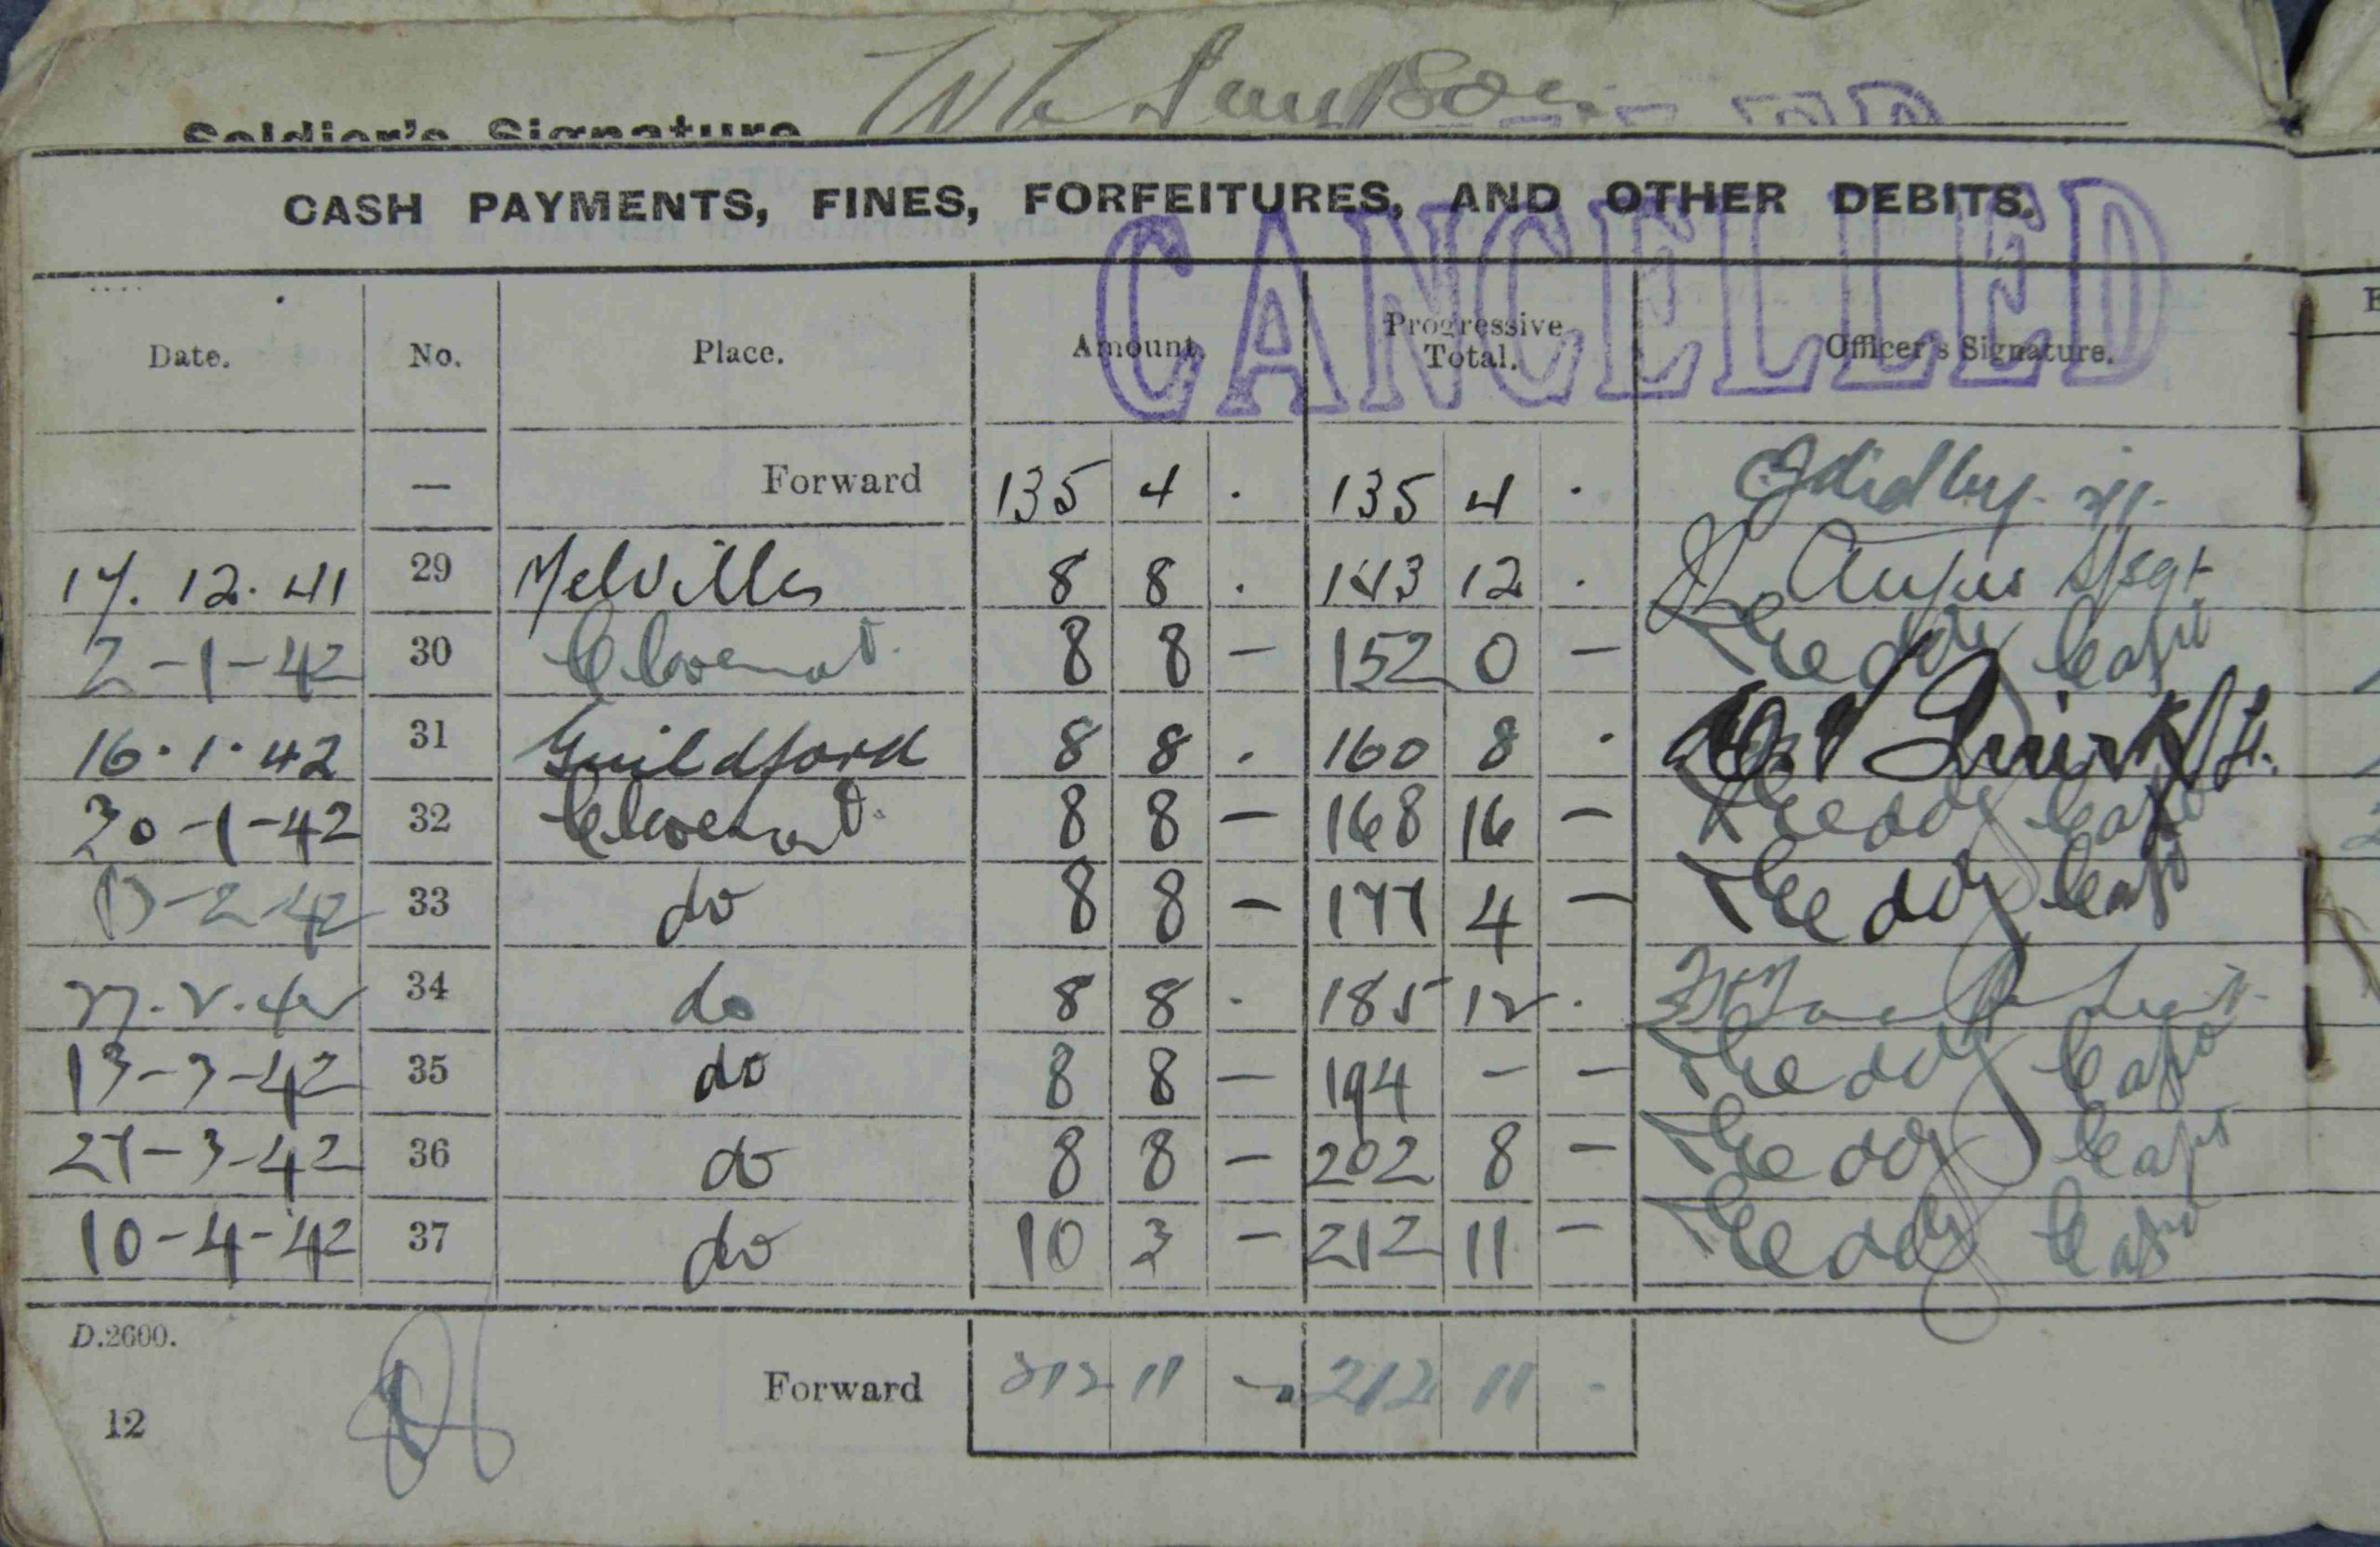 Soldier's Signature
CASH PAYMENTS, FINES, FORFEITURES, AND OTHER DEBITS.
CANCELLED
Date. No. Place. Amount. Progressive Total. Officer's Signature.
— Forward 135 4 . 135 4 .
17. 12. 41 29 Melville 8 8 . 143 12 . Angus S/Sgt
2-1-42 30 8 8 — 152 0 — Capt
16.1.42 31 Guildford 8 8 . 160 8 . Quirk Lt.
30-1-42 32 8 8 — 168 16 — Capt
13-2-42 33 do 8 8 — 177 4 — Capt
27.2.42 34 do 8 8 . 185 12 .
13-3-42 35 do 8 8 — 194 — — Capt
27-3-42 36 do 8 8 — 202 8 — Capt
10-4-42 37 do 10 3 — 212 11 — Capt
D.2600.
Forward 212 11 — 212 11 -
12